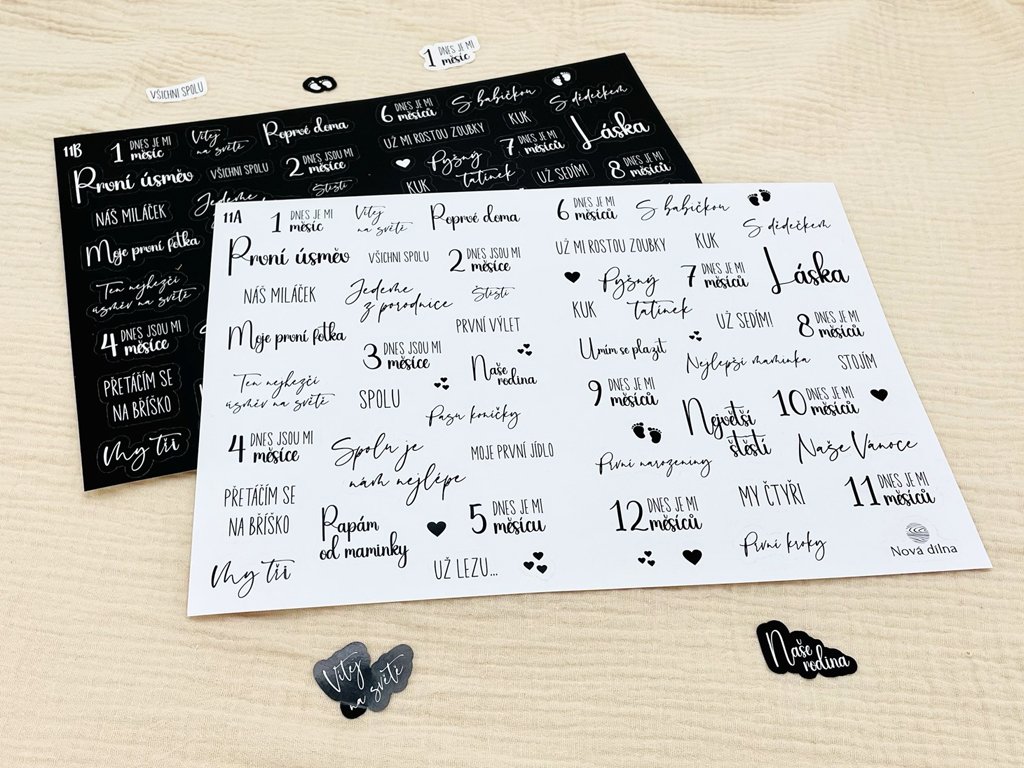 1 DNES JE MI
měsíc
VŠICHNI SPOLU
11B
1 DNES JE MI
měsíc
Vítej
na světě
Poprvé doma
6 DNES JE MI
měsíců
S babičkou
S dědečkem
První úsměv
VŠICHNI SPOLU
2 DNES JSOU MI
měsíce
UŽ MI ROSTOU ZOUBKY
KUK
Láska
NÁŠ MILÁČEK
Jedeme
Štěstí
KUK
Pyšný
tatínek
7 DNES JE MI
měsíců
UŽ SEDÍM!
8 DNES JE MI
měsíců
Moje první fotka
Ten nejhezčí
úsměv na světě
4 DNES JSOU MI
měsíce
PŘETÁČÍM SE
NA BŘÍŠKO
My tři
11A
1 DNES JE MI
měsíc
Vítej
na světě
Poprvé doma
6 DNES JE MI
měsíců
S babičkou
S dědečkem
První úsměv
VŠICHNI SPOLU
2 DNES JSOU MI
měsíce
UŽ MI ROSTOU ZOUBKY
KUK
Láska
NÁŠ MILÁČEK
Jedeme
z porodnice
Štěstí
Pyšný
tatínek
7 DNES JE MI
měsíců
KUK
UŽ SEDÍM!
8 DNES JE MI
měsíců
Moje první fotka
PRVNÍ VÝLET
3 DNES JSOU MI
měsíce
Naše
rodina
Umím se plazit
Nejlepší maminka
STOJÍM
Ten nejhezčí
úsměv na světě
SPOLU
Pasu koníčky
9 DNES JE MI
měsíců
Největší
štěstí
10 DNES JE MI
měsíců
4 DNES JSOU MI
měsíce
Spolu je
nám nejlépe
MOJE PRVNÍ JÍDLO
První narozeniny
Naše Vánoce
PŘETÁČÍM SE
NA BŘÍŠKO
Papám
od maminky
5 DNES JE MI
měsíců
12 DNES JE MI
měsíců
MY ČTYŘI
11 DNES JE MI
měsíců
My tři
UŽ LEZU...
První kroky
Nová dílna
Vítej
na světě
Naše
rodina